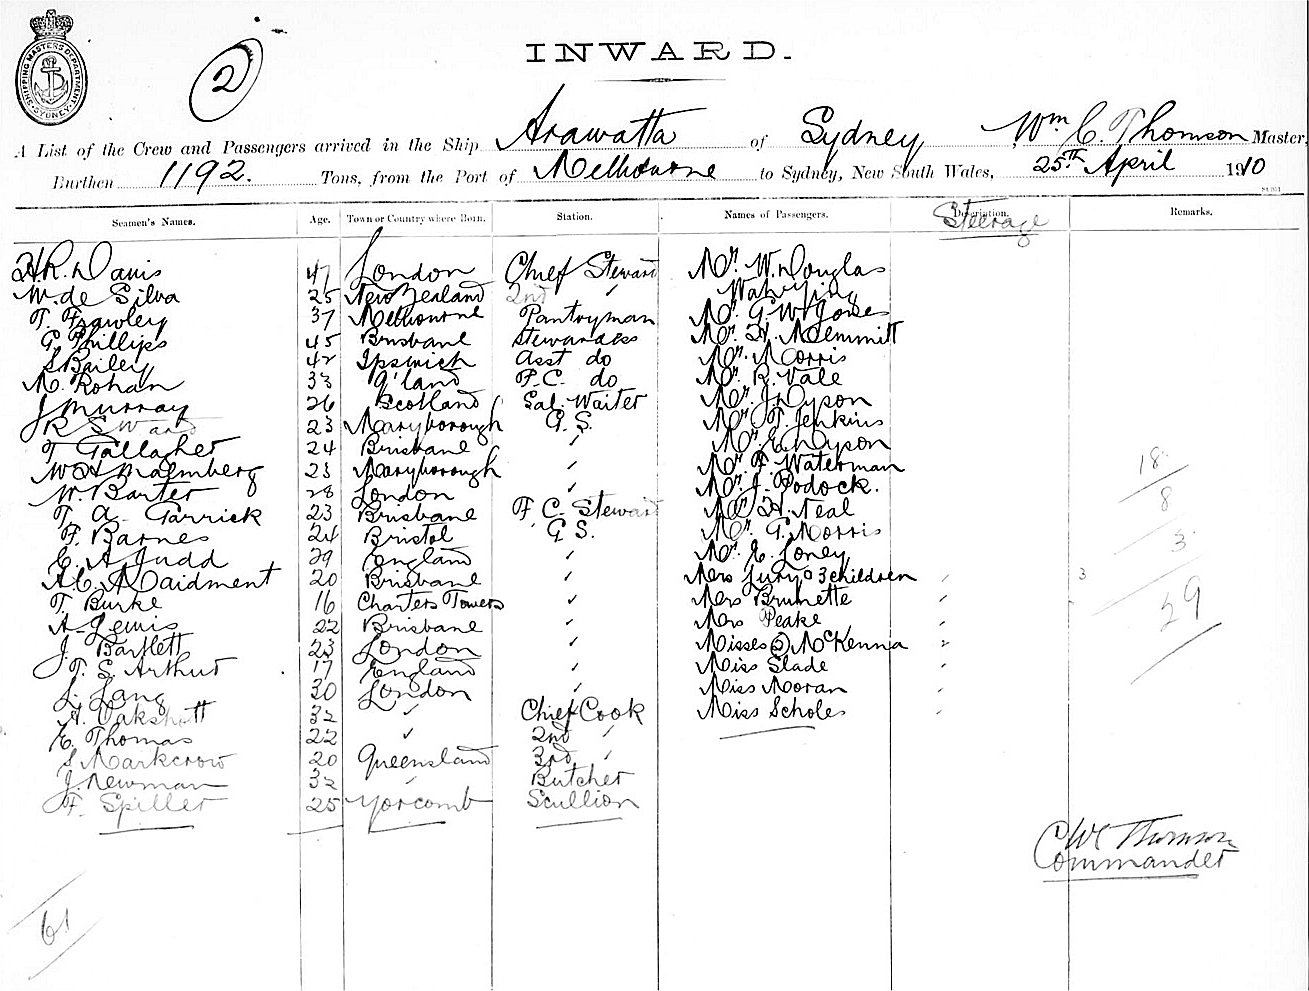 SHIPPING MASTERS DEPARTMENT SYDNEY
2
INWARD.
A List of the Crew and Passengers arrived in the Ship Arawatta of Sydney Wm C. Thomson Master,
Burthen 1192. Tons, from the Port of Melbourne to Sydney, New South Wales, 25th April 1910
Seamen's Names. Age. Town or Country where Born. Station. Names of Passengers. Description. Remarks.
Steerage
H.R. Davis 47 London Chief Steward Mr. W. Douglas
W. de Silva 25 New Zealand 2nd " Wah
T. Frawley 37 Melbourne Pantryman Mr. G. W. Jones
G. Phillips 45 Brisbane Stewardess Mr. H. Memmitt
S Bailey 42 Ipswich Asst do Mr. Morris
M. Rohan 33 Q'land F.C. do Mr. R. Vale
J Murray 26 Scotland Sal. Waiter Mr. J. Dyson
R S Ward 23 Maryborough G.S. Mr T. Jenkins
T Gallagher 24 Brisbane " Mr E. Dyson
W A Malmberg 23 Maryborough " Mr F. Waterman
W. Barter 28 London " Mr. J. Podock.
T. A. Garrick 23 Brisbane F.C. Steward Mr H. Neal
F. Barnes 24 Bristol G.S. Mr. G. Morris
E. A Judd 29 England " Mr. E. Loney
A.C. Maidment 20 Brisbane " Mrs Jury & 3 children " 3
T. Burke 16 Charters Towers " Mrs Brunette "
A. Lewis 22 Brisbane " Mrs Peake "
J. Bartlett 23 London " Misses (2) McKenna "
T. S. Arthur 17 England " Miss Slade "
J. Lang 30 London " Miss Moran "
A. Oakshott 32 " Chief Cook Miss Scholes "
E. Thomas 22 " 2nd "
S Markcrow 20 Queensland 3rd "
J. Newman 32 " Butcher
F. Spiller 25 Yorcomb Scullion
18
8
3
29
C W C Thomson
Commander
61